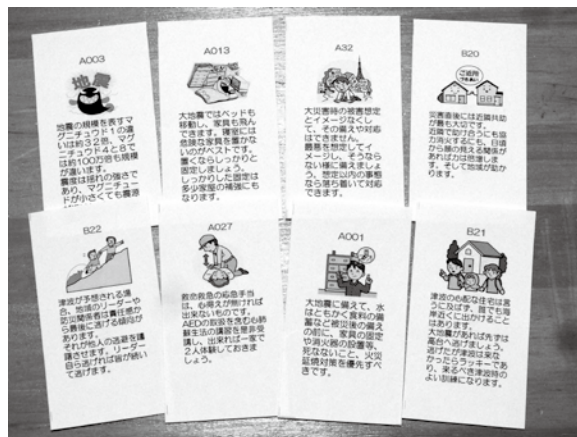 A003
地震
地震の規模を表すマ
グニチュウド1の違
いは約32倍、マグ
ニチュウド4と8で
は約100万倍も規模
が違います。
震度は揺れの強さで
あり、マグニチュー
ドが小さくても震源
A013
大地震ではベッドも
移動し、家具も飛ん
できます。寝室には
危険な家具を置かな
いのがベストです。
置くならしっかりと
固定しましょう。
しっかりした固定は
多少家屋の補強にも
なります。
A32
大災害時の被害想定
とイメージなくし
て、その備えや対応
はできません。
最悪を想定してイ
メージし、そうならな
い様に備えましょ
う。想定以内の事態
なら落ち着いて対応
できます。
B20
ご近所
災害直後には近隣共助
が最も大切です。
近隣で助け合うにも協
力消火するにも、日頃
から顔の見える関係が
あれば力は倍増しま
す。そして地域が助か
ります。
B22
津波が予想される場
合、地域のリーダーや
防災関係者は責任感か
ら最後に逃げる傾向が
あります。
それが他人の逃避を躊
躇させます。リーダー
自ら逃げれば皆が続い
て逃げます。
A027
救命救急の応急手当
は、心得えが無ければ
出来ないものです。
AEDの取扱を含む心肺
蘇生法の講習を是非受
講し、出来れば一家で
2人体験しておきま
しょう。
A001
大地震に備えて、水
はともかく食料の備
蓄など被災後の備え
の前に、家具の固定
や消火器の設置等、
死なないこと、火災
延焼対策を優先すべ
きです。
B21
津波の心配な住宅は言
うに及ばず、誰でも海
岸近くに出かけること
はあります。
大地震があれば先ずは
高台へ逃げましょう。
逃げたが津波は来な
かったらラッキーであ
り、来るべき津波時の
よい訓練になります。